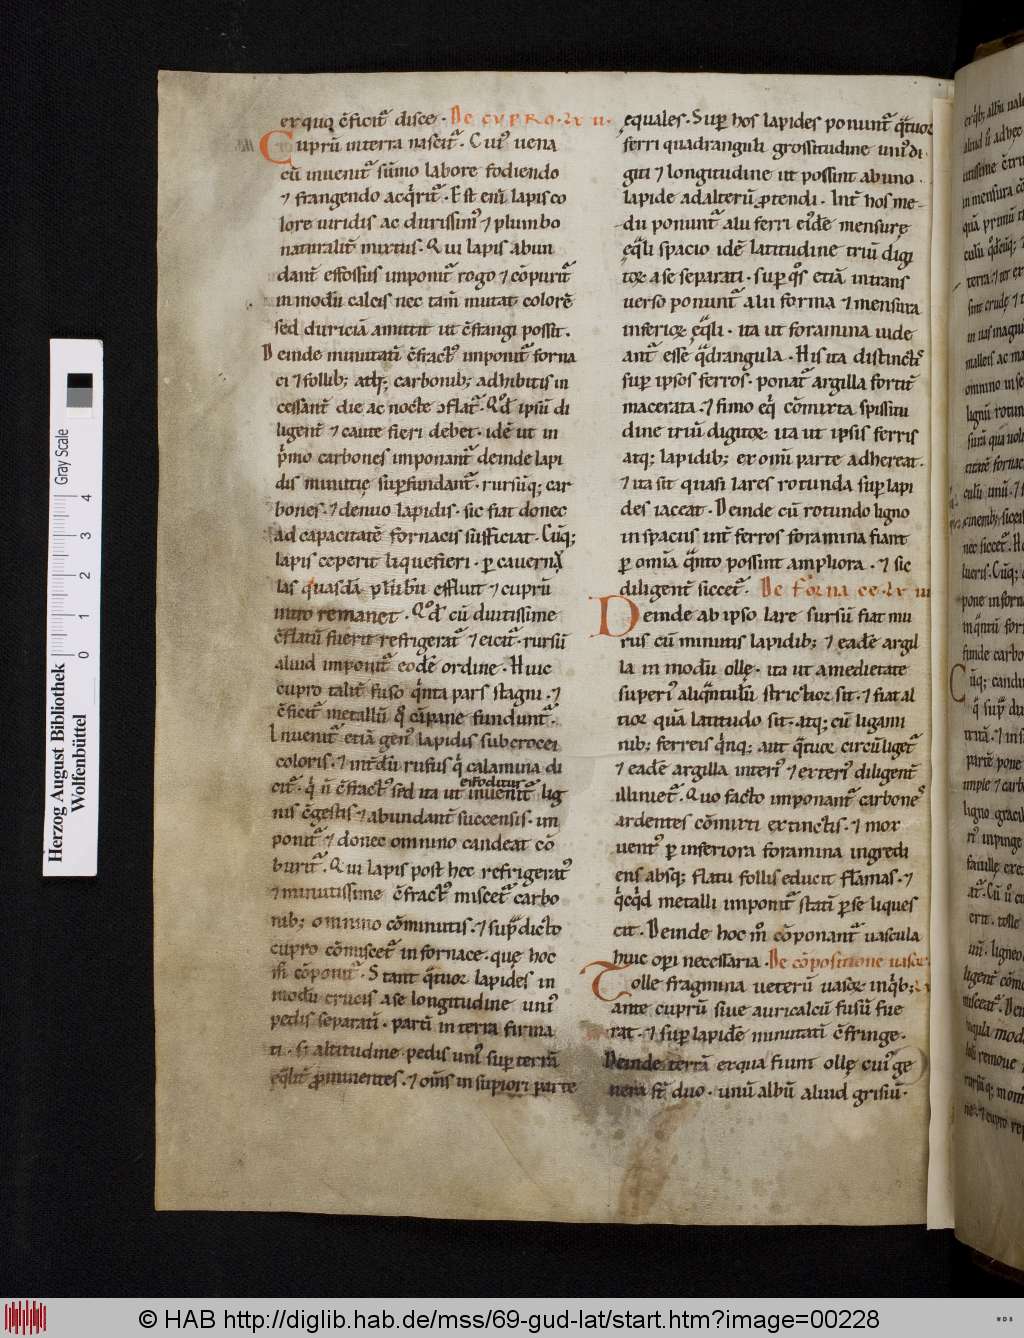 ex quo c̄ficit᷑ disce · De cvpro · lx ii ·
Cuprū in terra nascit᷑ · Cuiꝰ uena
cū inuenit᷑ sūmo labore fodiendo
⁊ frangendo acq̇rit᷑ · Est eni lapis co
lore uiridis ac durissimꝰ ⁊ plumbo
naturalit̄ mixtus · Qui lapis abun
dant̄ effossus imponit᷑ rogo ⁊ cōpurit᷑
in modū calcis nec tam̄ mutat colorē
sed duriciā amittit ut c̄frangi possit ·
Deinde minutatī c̄fractꝰ imponit᷑ forna
ci ⁊ follib; atq; carbonib; adhibitis in
cessant̄ die ac nocte ↄflat᷑ · Qd̄ ipsū di
ligent̄ ⁊ caute fieri debet · idē ut in
ṗmo carbones imponant᷑ deinde lapi
dis minutię suꝑfundant᷑ · rursūq; car
bones · ⁊ denuo lapidis · sic fiat donec
ad capacitatē fornacis sufficiat · Cūq;
lapis ceperit liquefieri · ꝑ cauernu
las quasdā plūbū effluit ⁊ cuprū
intro remanet · Qd̄ cū diutissime
c̄flatū fuerit refrigerat᷑ ⁊ eicit᷑ · rursū
aliud imponit᷑ eodē ordine · Huic
cupro talit̄ fuso q̇nta pars stagni · ⁊
c̄ficit᷑ metallū q̊ cāpane fundunt᷑ ·
Inuenit᷑ etiā genꝰ lapidis subcrocei
coloris · ⁊ int̄dū rufus q̇ calamina di
cit᷑ · q̇ ñ c̄fractꝰ sed ita ut inuenit᷑ lig
effoditur
nis c̄gestis ⁊ abundant̄ succensis · im
ponit᷑ ⁊ donec omnino candeat cō
burit᷑ · Qui lapis post hec refrigeratꝰ
⁊ minutissime c̄fractꝰ miscet᷑ carbo
nib; omnino cōminutis · ⁊ supᷓdicto
cupro cōmiscet᷑ in fornace · quę hoc
m̊ cōponit᷑ · Stant qᷓtuor lapides in
modū crucis a se longitudine uniꝰ
pedis separati · partī in terra firma
ti · s; altitudine pedis uniꝰ suꝑ terrā
eq̄lit̄ prominentes · ⁊ om̄s in supiori parte
equales · Suꝑ hos lapides ponunt᷑ qᷓtuor
ferri quadranguli grossitudine uniꝰ di
giti ⁊ longitudine ut possint ab uno
lapide ad alterū ꝓtendi · Int̄ hos me
dii ponunt᷑ alii ferri eiꝰdē mensurę
ęqᷓli spacio idē latitudine triū digi
toꝝ a se separati · suꝑ qͦs etiā in trans
uerso ponunt᷑ alii forma ⁊ mensura
inferioꝝ ęqᷓli · ita ut foramina uide
ant᷑ esse qᷓdrangula · His ita distinctis
suꝑ ipsos ferros · ponat᷑ argilla fortit̄
macerata · ⁊ fimo eq̇ cōmixta spissitu
dine triū digitoꝝ ita ut ipsis ferris
atq; lapidib; ex omi parte adhereat ·
⁊ ita sit quasi lares rotunda suꝑ lapi
des iaceat · Deinde cū rotundo ligno
in spaciis int̄ ferros foramina fiant
ꝑ omīa qᷓnto possint ampliora · ⁊ sic
diligent̄ siccet᷑ · De fornace · lx iii
Deinde ab ipso lare sursū fiat mu
rus cū minutis lapidib; ⁊ eadē argil
la in modū ollę · ita ut a medietate
superiꝰ aliqᷓntulū strictior sit · ⁊ fiat al
tior quā latitudo sit · atq; cū ligami
nib; ferreis q̇nq; aut qᷓtuor circūliget᷑
⁊ eadē argilla interiꝰ ⁊ exteriꝰ diligent̄
illiniet᷑ · Quo facto imponant᷑ carbones
ardentes cōmixti extinctis · ⁊ mox
uentꝰ ꝑ inferiora foramina ingredi
ens absq; flatu follis educit flāmas · ⁊
q̇cq̇d metalli imponit᷑ statī ꝑ se liques
cit · Deinde hoc m̊ cōponant᷑ uascula
huic oꝑi necessaria · De cōpositione uascoꝝ ·
Tolle fragmina ueterū uasoꝝ in q̇b;
ante cuprū siue auricalcū fusū fue
rat · ⁊ suꝑ lapidē minutatī c̄fringe ·
Deinde terrā ex qua fiunt ollę cuiꝰ ge
nera st̄ duo · unū albū aliud grisiū ·
Herzog August Bibliothek
Wolfenbüttel
Gray Scale
0 1 2 3 4
© HAB http://diglib.hab.de/mss/69-gud-lat/start.htm?image=00228
WDB